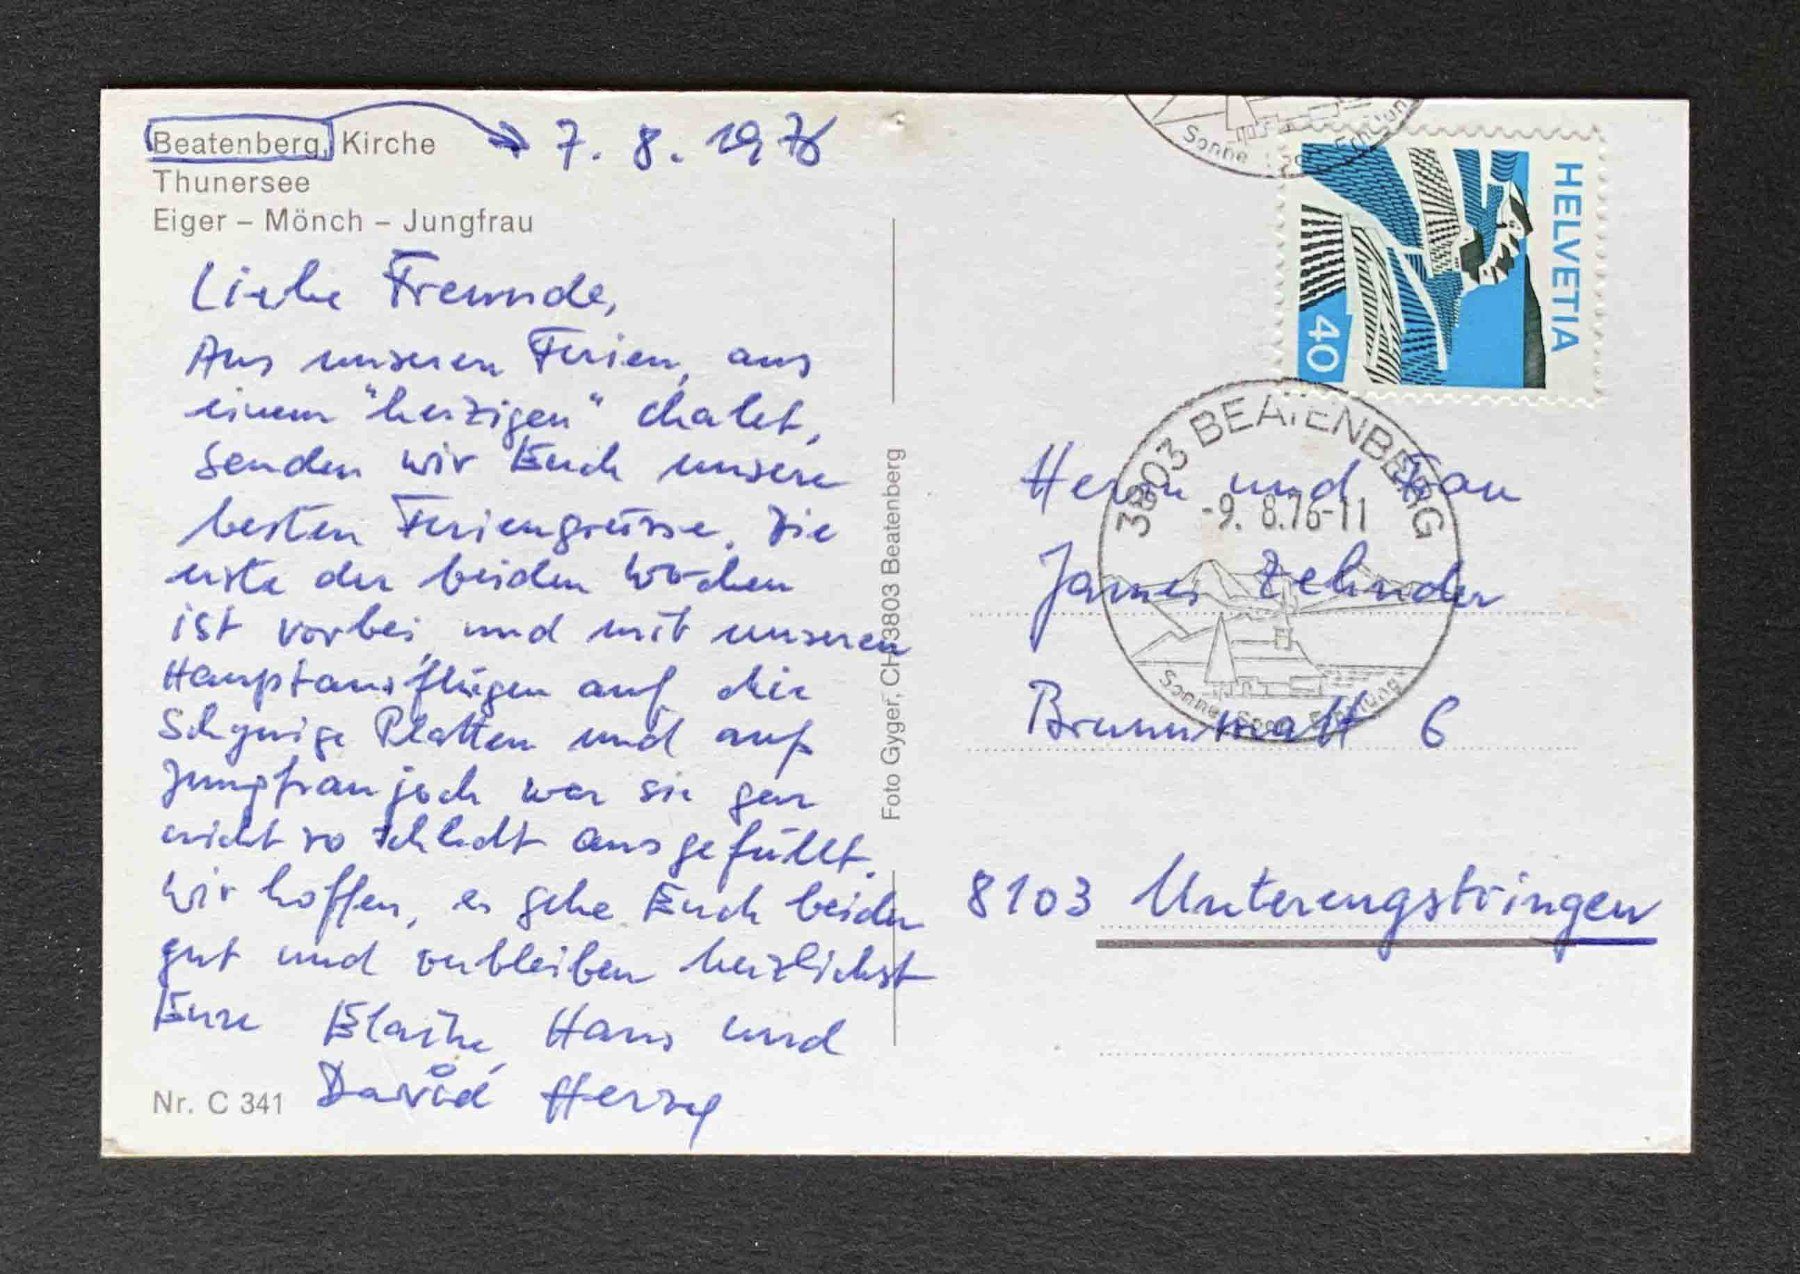 Beatenberg, Kirche
7. 8. 1976
Thunersee
Eiger – Mönch – Jungfrau
Liebe Freunde,
Aus unseren Ferien, aus
einem "herzigen" chalet,
senden wir Euch unsere
besten Feriengrüsse. Die
erste der beiden Wochen
ist vorbei, und mit unseren
Hauptausflügen auf die
Schynige Platten und auf
Jungfraujoch war sie gar
nicht so schlecht ausgefüllt.
Wir hoffen, es gehe Euch beiden
gut und verbleiben herzlichst
Eure Elaine, Hans und
David Herzog
Nr. C 341
Foto Gyger, CH 3803 Beatenberg
HELVETIA
40
3803 BEATENBERG
-9. 8.76-11
Sonne Erholung
Sonne
Herrn und Frau
James Zehnder
Brunnmatt 6
8103 Unterengstringen